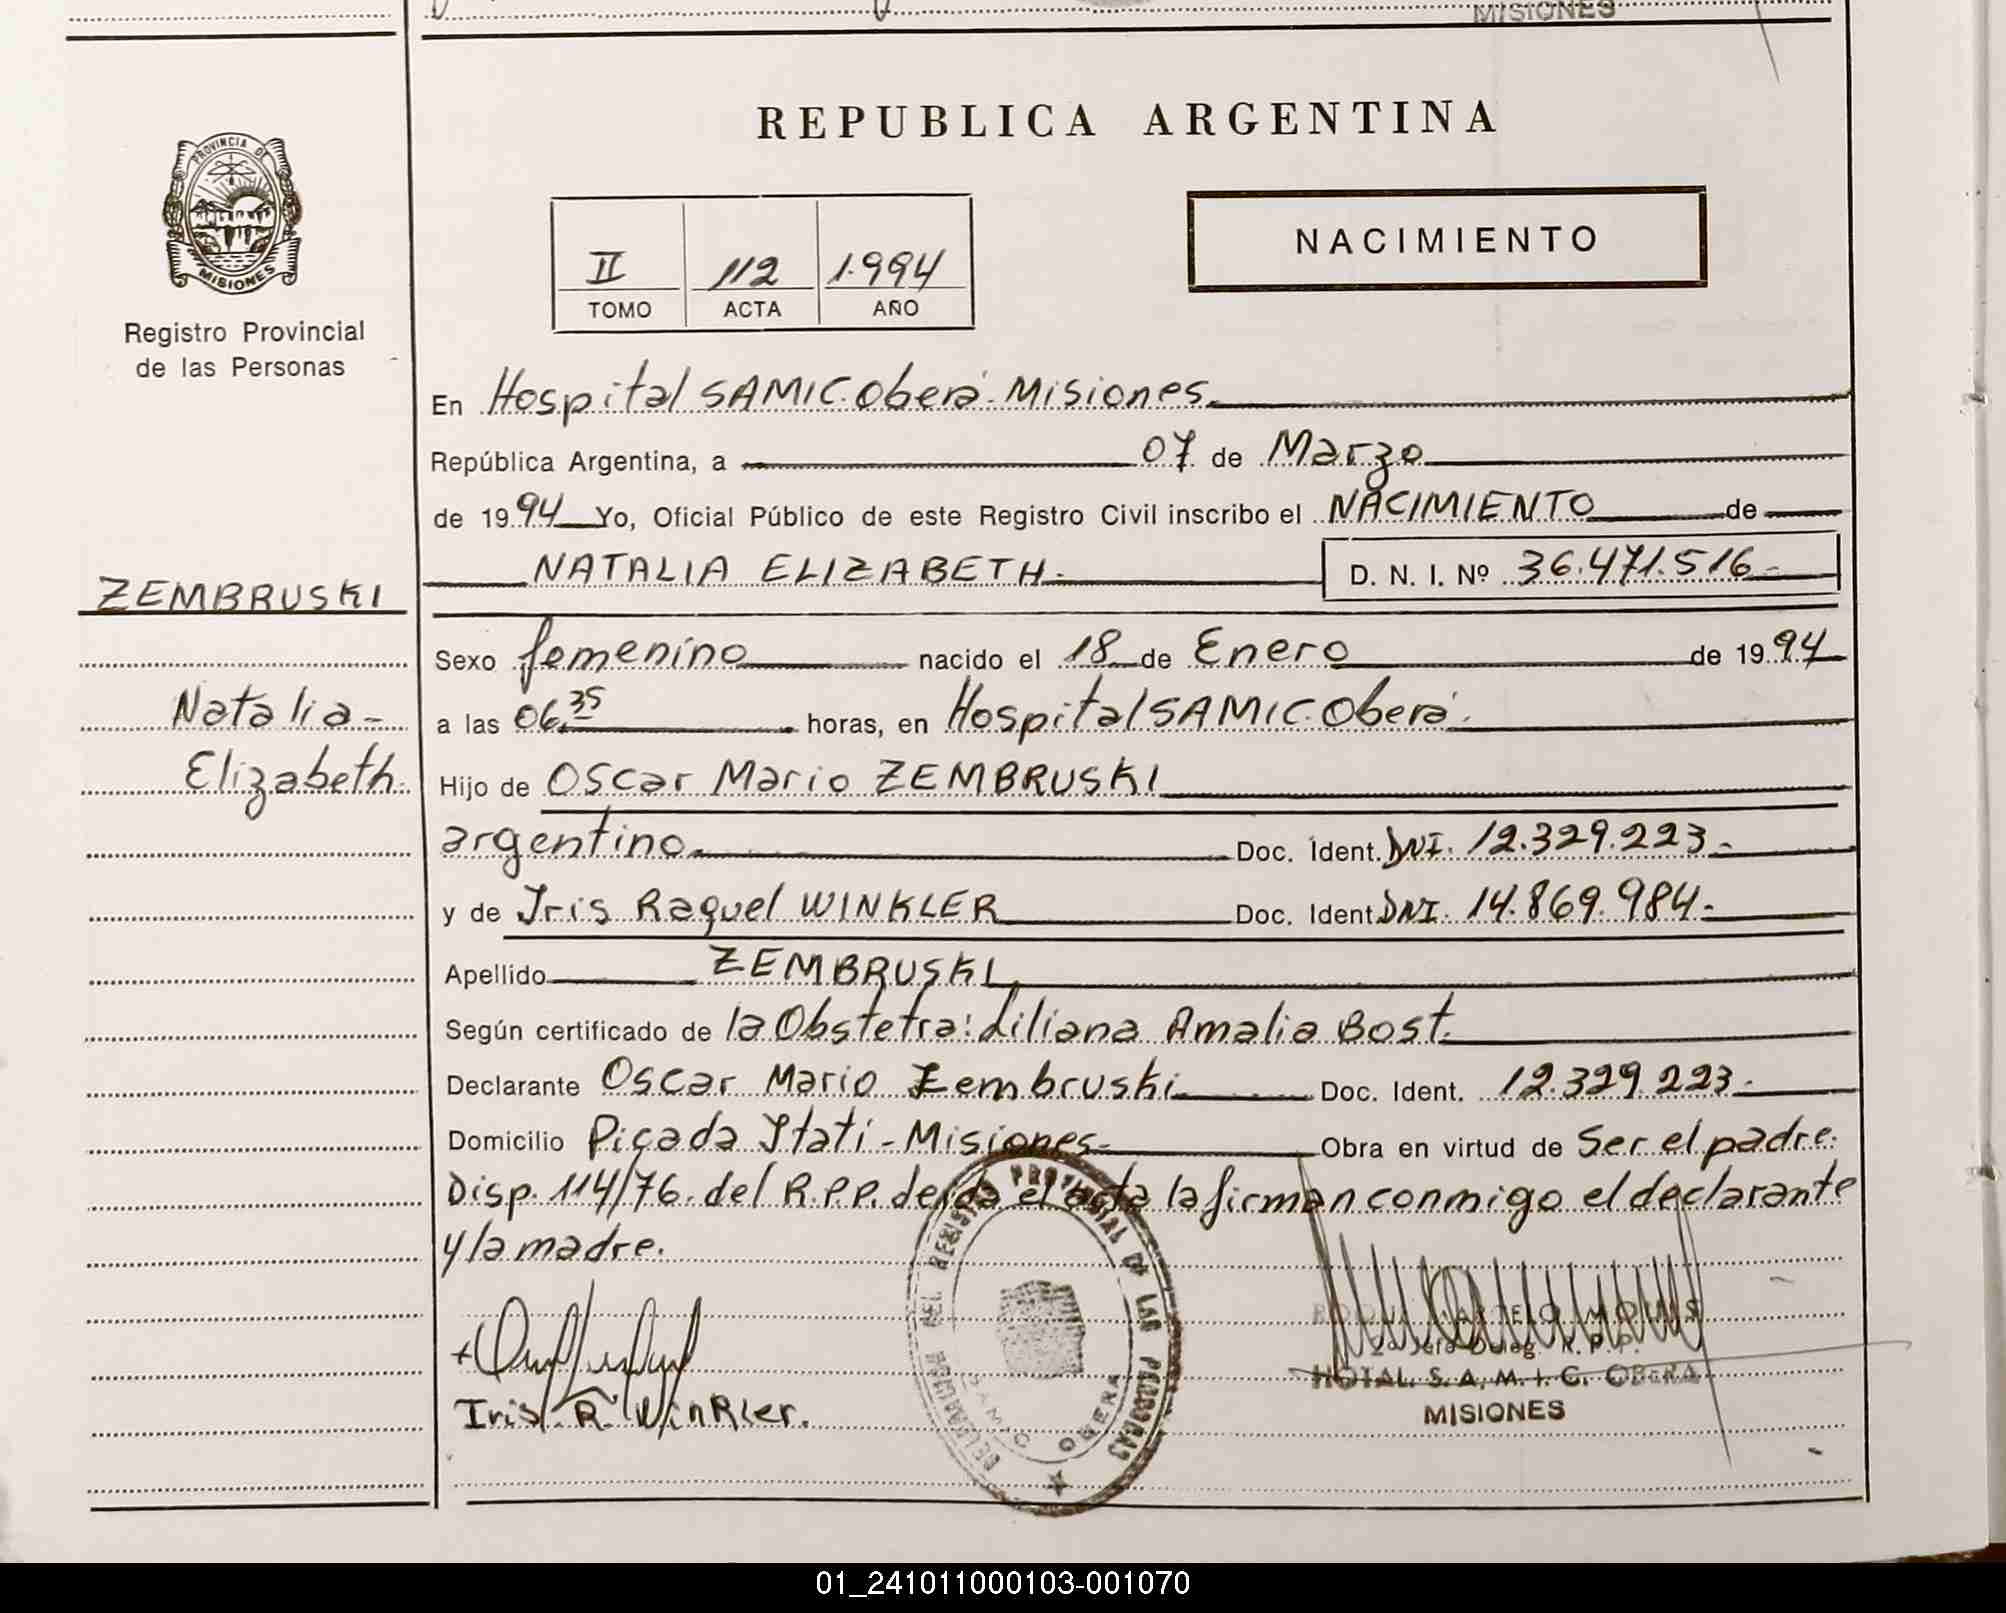 MISIONES
REPUBLICA ARGENTINA
PROVINCIA DE
MISIONES
Registro Provincial
de las Personas
NACIMIENTO
II 112 1.994
TOMO ACTA AÑO
En Hospital SAMIC. Oberá. Misiones.
República Argentina, a 07 de Marzo
de 1994 Yo, Oficial Público de este Registro Civil inscribo el NACIMIENTO de
NATALIA ELIZABETH. D. N. I. Nº 36.471.516-
ZEMBRUSKI
Natalia-
Elizabeth.
Sexo femenino nacido el 18 de Enero de 1994
a las 06.35 horas, en Hospital SAMIC. Oberá.
Hijo de Oscar Mario ZEMBRUSKI
argentino. Doc. Ident. DNI. 12.329.223.-
y de Iris Raquel WINKLER Doc. Ident. DNI. 14.869.984.-
Apellido ZEMBRUSKI
Según certificado de la Obstetra: Liliana Amalia Bost.
Declarante Oscar Mario Zembruski Doc. Ident. 12.329.223.-
Domicilio Picada Itatí - Misiones- Obra en virtud de Ser el padre.
Disp. 114/76. del R.P.P. el acta la firman conmigo el declarante
y la madre.
Iris R. Winkler.
DEL REGISTRO PROVINCIAL DE LAS PERSONAS
SAMIC OBERA
R. P. P.
HOTAL. S. A. M. I. C. OBERA
MISIONES
01_241011000103-001070